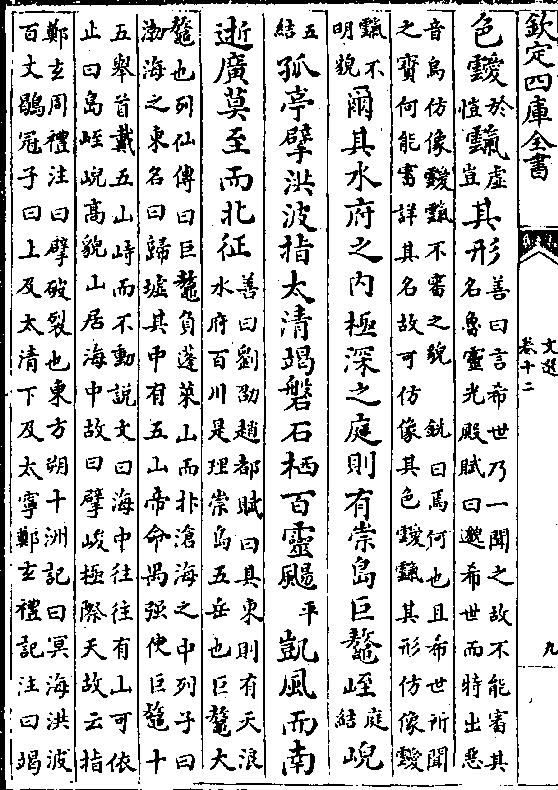 欽定四庫全書
文選
卷十二
九
色靉於愷靅虛豈其形善曰言希世乃一聞之故不能審其名魯靈光殿賦曰邈希世而特出惡
音烏仿像靉靅不審之貌　銑曰焉何也且希世所聞之寳何能審詳其名故可仿像其色靉靅其形仿像靉
靅不明貌爾其水府之内極深之庭則有崇島巨鼇峌庭結㟫
五結孤亭擘洪波指太清竭磐石栖百靈颺平凱風而南
逝廣莫至而北征善曰劉劭趙都賦曰其東則有天浪水府百川是理崇島五岳也巨鼇大
鼇也列仙傳曰巨鼇負蓬萊山而抃滄海之中列子曰渤海之東名曰歸墟其中有五山帝命禺强使巨鼇十
五舉首戴五山峙而不動說文曰海中往往有山可依止曰島峌㟫髙貌山居海中故曰擘峻極際天故云指
鄭玄周禮注曰擘破裂也東方朔十洲記曰冥海洪波百丈鶡冠子曰上及太清下及太寧鄭玄禮記注曰竭